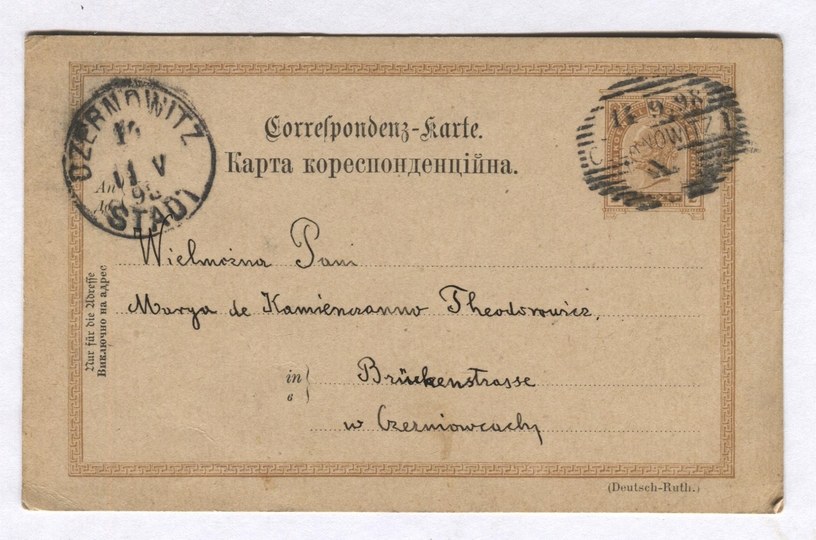 Correspondenz-Karte.
Карта кореспонденційна.
CZERNOWITZ
11 V
98
STADT
11.9.98
CZERNOWITZ 1
An
Wielmożna Pani
Marya de Kamienczanno Theodorowicz,
Nur für die Adresse
Виключно на адрес
in
в
Brückenstrasse
w Czerniowcach
(Deutsch-Ruth.)